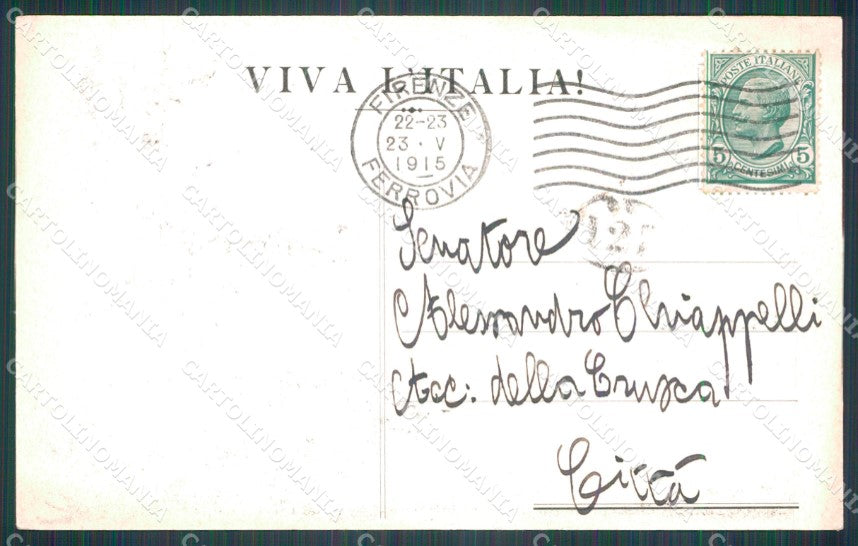 VIVA L'ITALIA!
FIRENZE
22-23
23 · V
1915
FERROVIA
POSTE ITALIANE
5 CENTESIMI 5
Senatore
Alessandro Chiappelli
Acc: della Crusca
Città
CARTOLINOMANIA